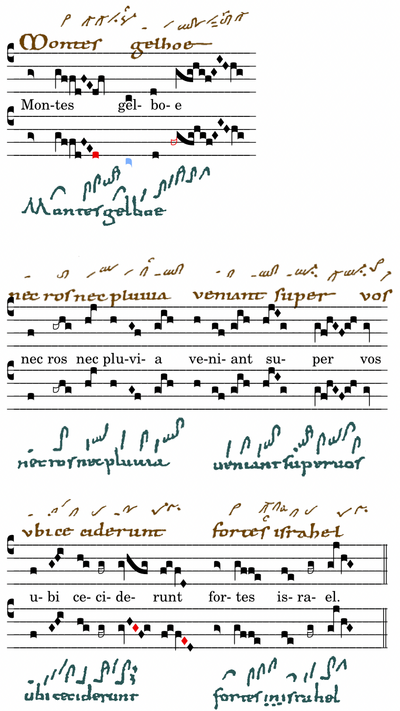 Montes gelboe
Mon-tes gel- bo- e
Montes gelboe
nec ros nec pluuia ueniant super uos
nec ros nec plu-vi- a ve-ni- ant su- per vos
nec ros nec pluuia ueniant super uos
ubi ceciderunt fortes israhel
u- bi ce-ci-de- runt for-tes is-ra- el.
ubi ceciderunt fortes israhel